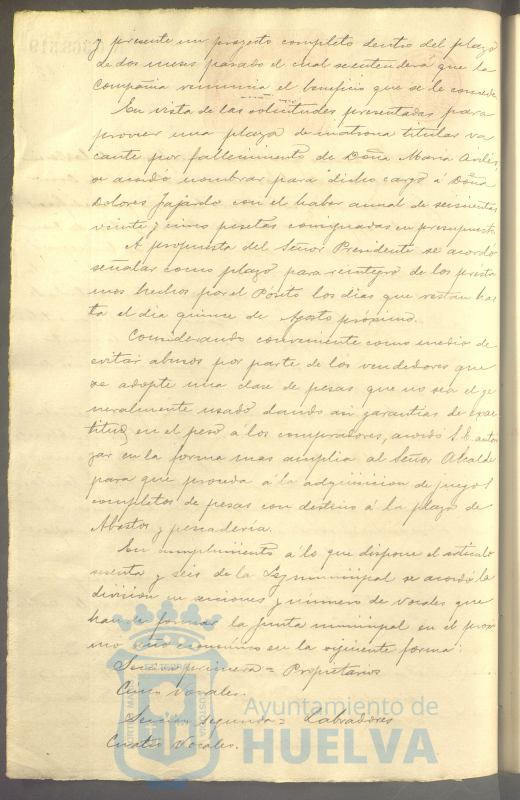 y presente un proyecto completo dentro del plazo
de dos meses pasado el cual se entenderá que la
Compañia renuncia el beneficio que se le concede.
En vista de las solicitudes presentadas para
proveer una plaza de matrona titular va
cante por fallecimiento de Doña Maria
se acordó nombrar para dicho cargo á Doña
Dolores Fajardo con el haber anual de seiscientas
veinte y cinco pesetas consignadas en presupuesto.
A propuesta del Señor Presidente se acordó
señalar como plazo para reintegro de los présta
mos hechos por el Pósito los dias que restan has
ta el dia quince de Agosto próximo.
Considerando conveniente como medio de
evitar abusos por parte de los vendedores que
se adopte una clase de pesas que no sea el ge
neralmente usado dando asi garantías de exac
titud en el peso á los compradores, acordó S.E. autori
zar en la forma mas amplia al Señor Alcalde
para que proceda á la adquisicion de juegos
completos de pesas con destino á la plaza de
Abastos y pescadería.
En cumplimiento á lo que dispone el articulo
sesenta y seis de la Ley municipal se acordó la
división en secciones y número de vocales que
han de formar la junta municipal en el proxi
mo año económico en la siguiente forma:
Seccion primera = Propietarios
Cinco Vocales.
Seccion segunda = Labradores
Cuatro Vocales.
Ayuntamiento de
HUELVA